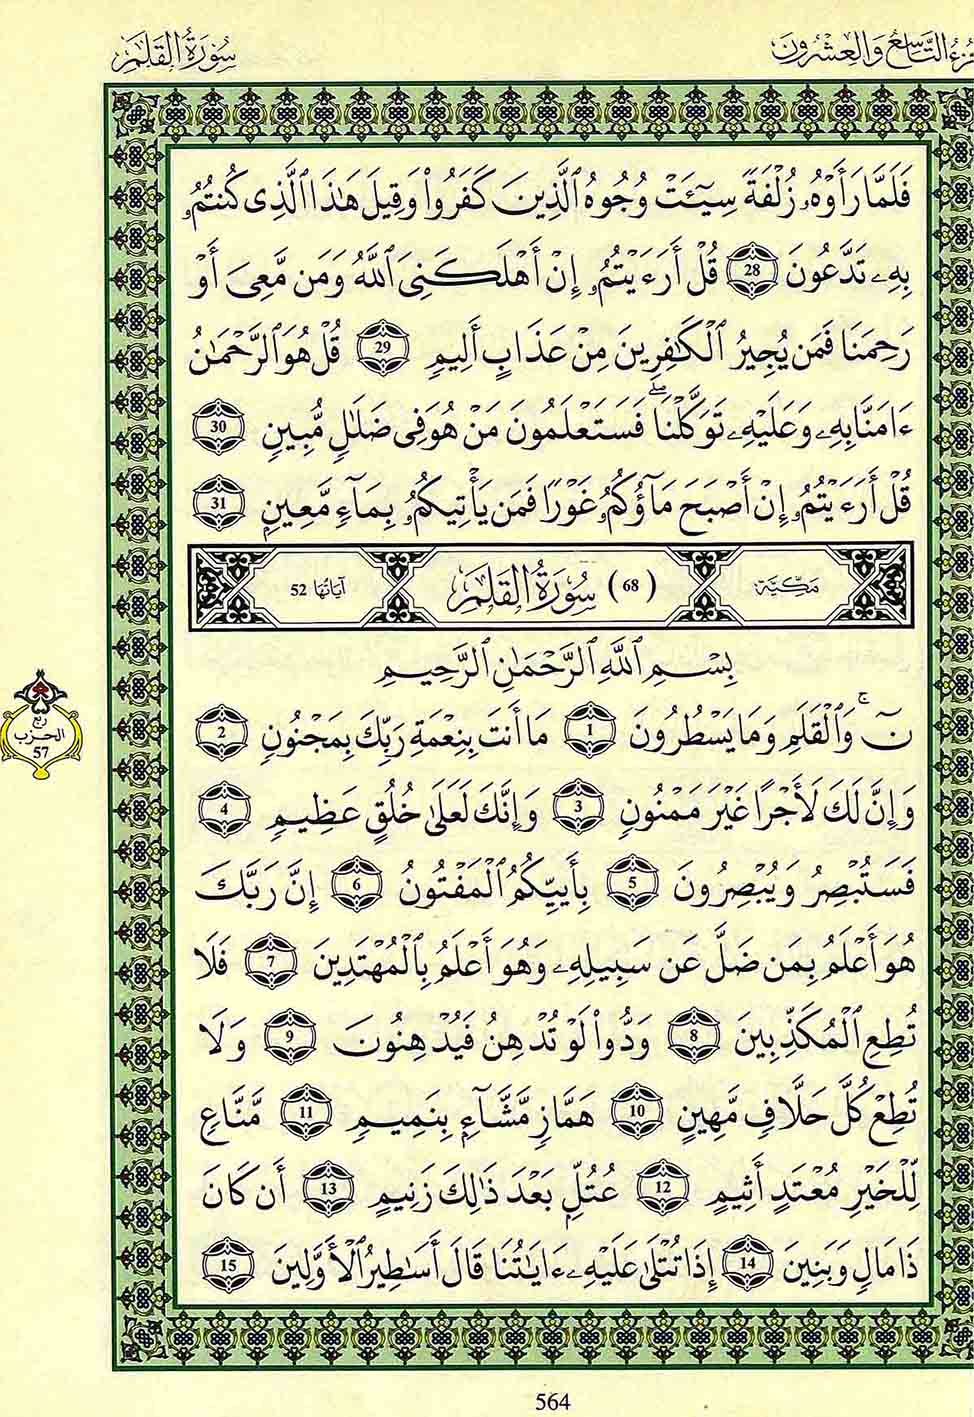 جزء التاسع والعشرون
سُورَةُ القَلَمِ
فَلَمَّا رَأَوْهُ زُلْفَةً سِيٓـَٔتْ وُجُوهُ ٱلَّذِينَ كَفَرُواْ وَقِيلَ هَٰذَا ٱلَّذِى كُنتُمُۥ
بِهِۦ تَدَّعُونَ 28 قُلْ أَرَءَيْتُمُۥ إِنْ أَهْلَكَنِىَ ٱللَّهُ وَمَن مَّعِىَ أَوْ
رَحِمَنَا فَمَن يُجِيرُ ٱلْكَٰفِرِينَ مِنْ عَذَابٍ أَلِيمٍ 29 قُلْ هُوَ ٱلرَّحْمَٰنُ
ءَامَنَّا بِهِۦ وَعَلَيْهِۦ تَوَكَّلْنَاۖ فَسَتَعْلَمُونَ مَنْ هُوَ فِى ضَلَٰلٍ مُّبِينٍ 30
قُلْ أَرَءَيْتُمُۥ إِنْ أَصْبَحَ مَآؤُكُمُۥ غَوْرًا فَمَن يَأْتِيكُمُۥ بِمَآءٍ مَّعِينٍ 31
مَكِّيَّة (68) سُورَةُ القَلَمِ آيَاتُهَا 52
بِسْمِ ٱللَّهِ ٱلرَّحْمَٰنِ ٱلرَّحِيمِ
نٓۚ وَٱلْقَلَمِ وَمَا يَسْطُرُونَ 1 مَا أَنتَ بِنِعْمَةِ رَبِّكَ بِمَجْنُونٍ 2
وَإِنَّ لَكَ لَأَجْرًا غَيْرَ مَمْنُونٍ 3 وَإِنَّكَ لَعَلَىٰ خُلُقٍ عَظِيمٍ 4
فَسَتُبْصِرُ وَيُبْصِرُونَ 5 بِأَييِّكُمُ ٱلْمَفْتُونُ 6 إِنَّ رَبَّكَ
هُوَ أَعْلَمُ بِمَن ضَلَّ عَن سَبِيلِهِۦ وَهُوَ أَعْلَمُ بِٱلْمُهْتَدِينَ 7 فَلَا
تُطِعِ ٱلْمُكَذِّبِينَ 8 وَدُّواْ لَوْ تُدْهِنُ فَيُدْهِنُونَ 9 وَلَا
تُطِعْ كُلَّ حَلَّافٍ مَّهِينٍ 10 هَمَّازٍ مَّشَّآءٍ بِنَمِيمٍ 11 مَّنَّاعٍ
لِّلْخَيْرِ مُعْتَدٍ أَثِيمٍ 12 عُتُلٍّ بَعْدَ ذَٰلِكَ زَنِيمٍ 13 أَن كَانَ
ذَا مَالٍ وَبَنِينَ 14 إِذَا تُتْلَىٰ عَلَيْهِۦ ءَايَٰتُنَا قَالَ أَسَٰطِيرُ ٱلْأَوَّلِينَ 15
ربع
الحزب
57
564